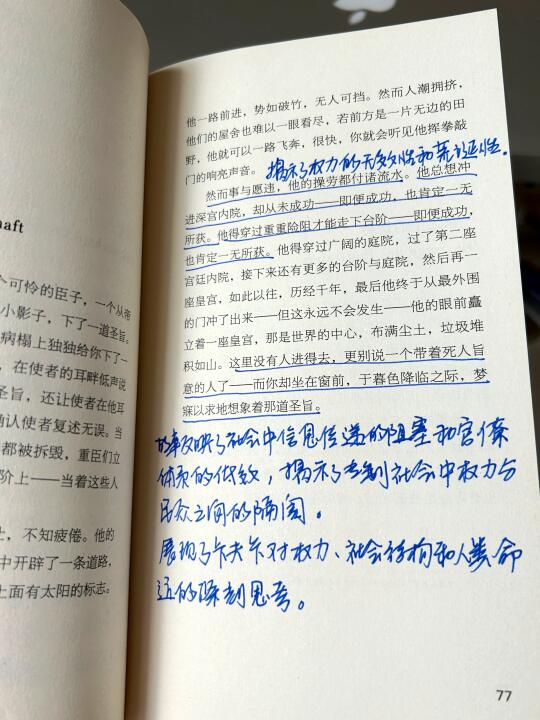 haft
个可怜的臣子，一个从帝
小影子，下了一道圣旨。
病榻上独独给你下了一
，在使者的耳畔低声说
旨，还让使者在他耳
确认使者复述无误。当
都被拆毁，重臣们立
阶上——当着这些人
，不知疲倦。他的
中开辟了一条道路，
上面有太阳的标志。
他一路前进，势如破竹，无人可挡。然而人潮拥挤，
他们的屋舍也难以一眼看尽，若前方是一片无边的田
野，他就可以一路飞奔，很快，你就会听见他挥拳敲
门的响亮声音。 揭示了权力的无效性和荒诞性.
然而事与愿违，他的操劳都付诸流水。他总想冲
进深宫内院，却从未成功——即便成功，也肯定一无
所获。他得穿过重重险阻才能走下台阶——即便成功，
也肯定一无所获。他得穿过广阔的庭院，过了第二座
宫廷内院，接下来还有更多的台阶与庭院，然后再一
座皇宫，如此以往，历经千年，最后他终于从最外围
的门冲了出来——但这永远不会发生——他的眼前矗
立着一座皇宫，那是世界的中心，布满尘土，垃圾堆
积如山。这里没有人进得去，更别说一个带着死人旨
意的人了——而你却坐在窗前，于暮色降临之际，梦
寐以求地想象着那道圣旨。
故事反映了社会中信息传递的阻塞和官僚
体系的低效，揭示了专制社会中权力与
民众之间的隔阂。
展现了卡夫卡对权力、社会结构和人类命
运的深刻思考。
77